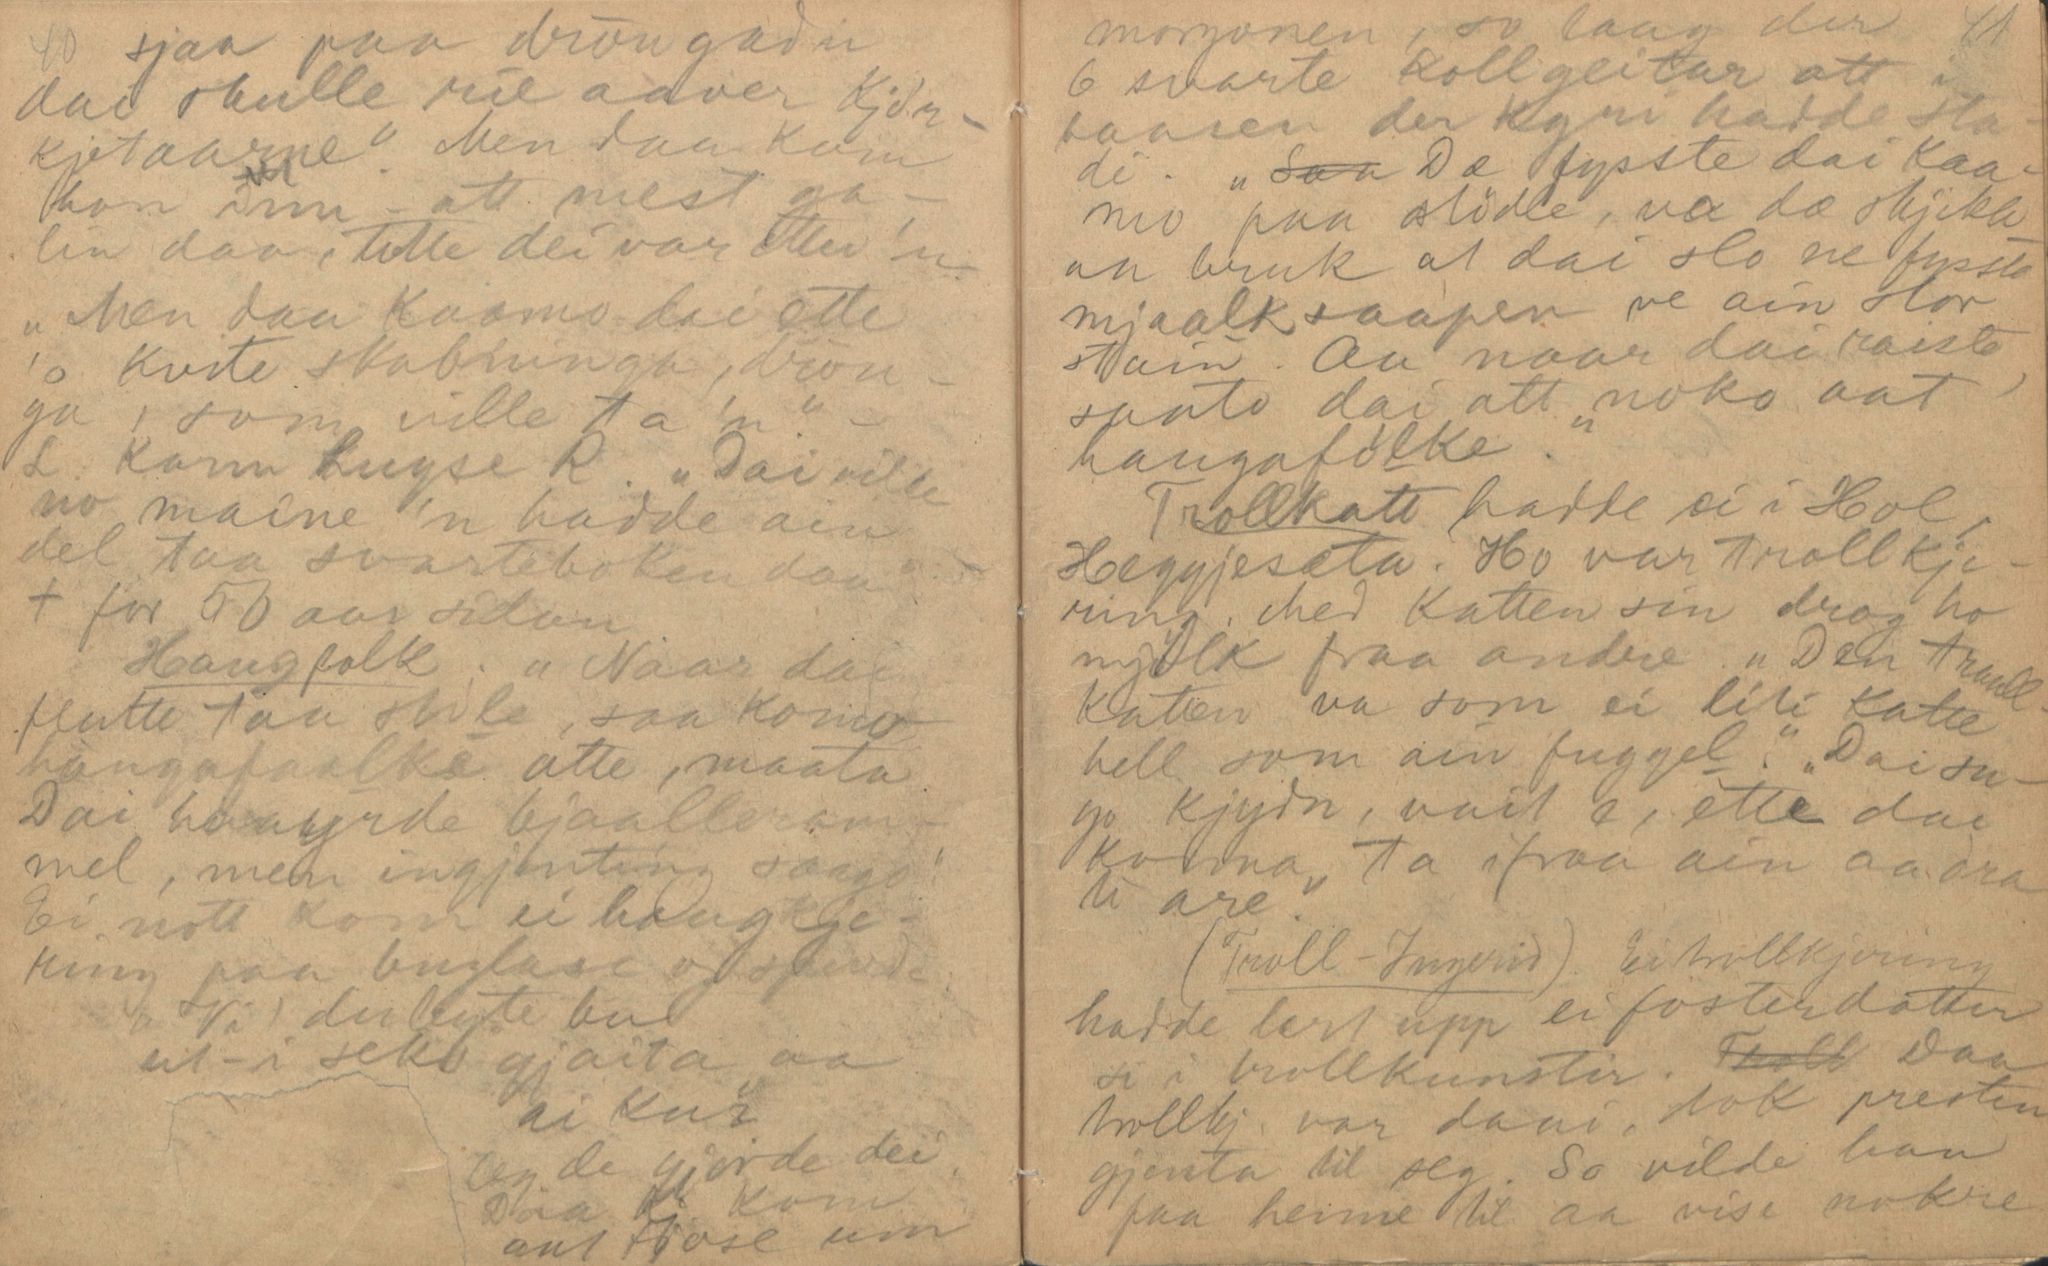 40 sjaa paa drongadn
dai skulle rie aaver Kjör-
kjetaarne". Men daa kom
han inn - att mest ga-
lin daa, tette dei var etter 'n.
"Men daa kaamo dai ette
'o kvite skabninga, dron-
ga, som ville ta 'n". -
L. kann hugse R. "Dai vilde
no maine 'n hadde ain
del taa svarteboken daa". -
† for 50 aar sidan
Haugfolk. "Naar dai
flutte taa stöle, saa komo
haugafaalke atte, maata
Dai haayrde bjaalleram-
mel, men ingjenting saago"
Ei nott kom ei haugkje-
ring paa buglase og spurde
"Vi' du byte bu
ei i seks gjaita aa
ai ku?"
Og de gjorde dei.
Daa Kj kom
aut i fjose um
41
morgonen, so laag der
6 svarte kollgeitar att i
baasen der kyri hadde sta-
di. "Saa Dæ fysste dai kaa-
mo paa stödle, va dæ skjikk
aa bruk at dai slo ne fyssta
mjaalksaapen ve ain stor
stain. Aa naar dai raiste,
saato dai att noko aat
haugafolke."
Trollkatt hadde ei i Hol,
Heggjeseta. Ho var trollkje-
ring. Med katten sin drog ho
mjölk fraa andre. "Den traall-
katten va som ei liti katte
hell som ain fuggel." "Dai su-
go kjydn, vait e, ette dai
konna ta ifraa ain aadra
ti are."
(Troll-Ingerid). Ei trollkjering
hadde lert upp ei fosterdotter
si i trollkunstir. Troll Daa
trollkj. var daui, tok presten
gjenta til seg. So vilde han
faa heime til aa vise nokre